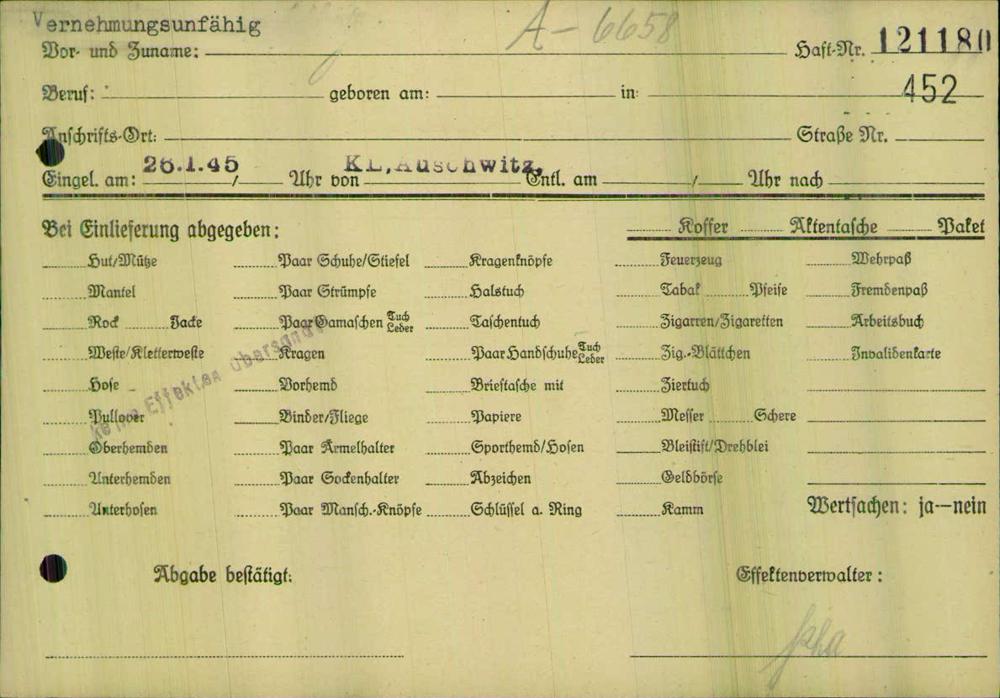 Vernehmungsunfähig
A-6658
Vor- und Zuname: Haft-Nr. 121180
Beruf: geboren am: in: 452
Anschrifts-Ort: Straße Nr.
Eingel. am: 26.1.45 / Uhr von KL, Auschwitz, Entl. am / Uhr nach
Bei Einlieferung abgegeben: Koffer Aktentasche Paket
Hut/Mütze Paar Schuhe/Stiefel Kragenknöpfe Feuerzeug Wehrpaß
Mantel Paar Strümpfe Halstuch Tabak Pfeife Fremdenpaß
Rock Jacke Paar Gamaschen Tuch Leder Taschentuch Zigarren/Zigaretten Arbeitsbuch
Weste/Kletterweste Kragen Paar Handschuhe Tuch Leder Zig.-Blättchen Invalidenkarte
Hose Vorhemd Brieftasche mit Ziertuch
Pullover Binder/Fliege Papiere Messer Schere
Oberhemden Paar Ärmelhalter Sporthemd/Hosen Bleistift/Drehblei
Unterhemden Paar Sockenhalter Abzeichen Geldbörse
Unterhosen Paar Mansch.-Knöpfe Schlüssel a. Ring Kamm Wertsachen: ja—nein
keine Effekten übersandt
Abgabe bestätigt: Effektenverwalter: